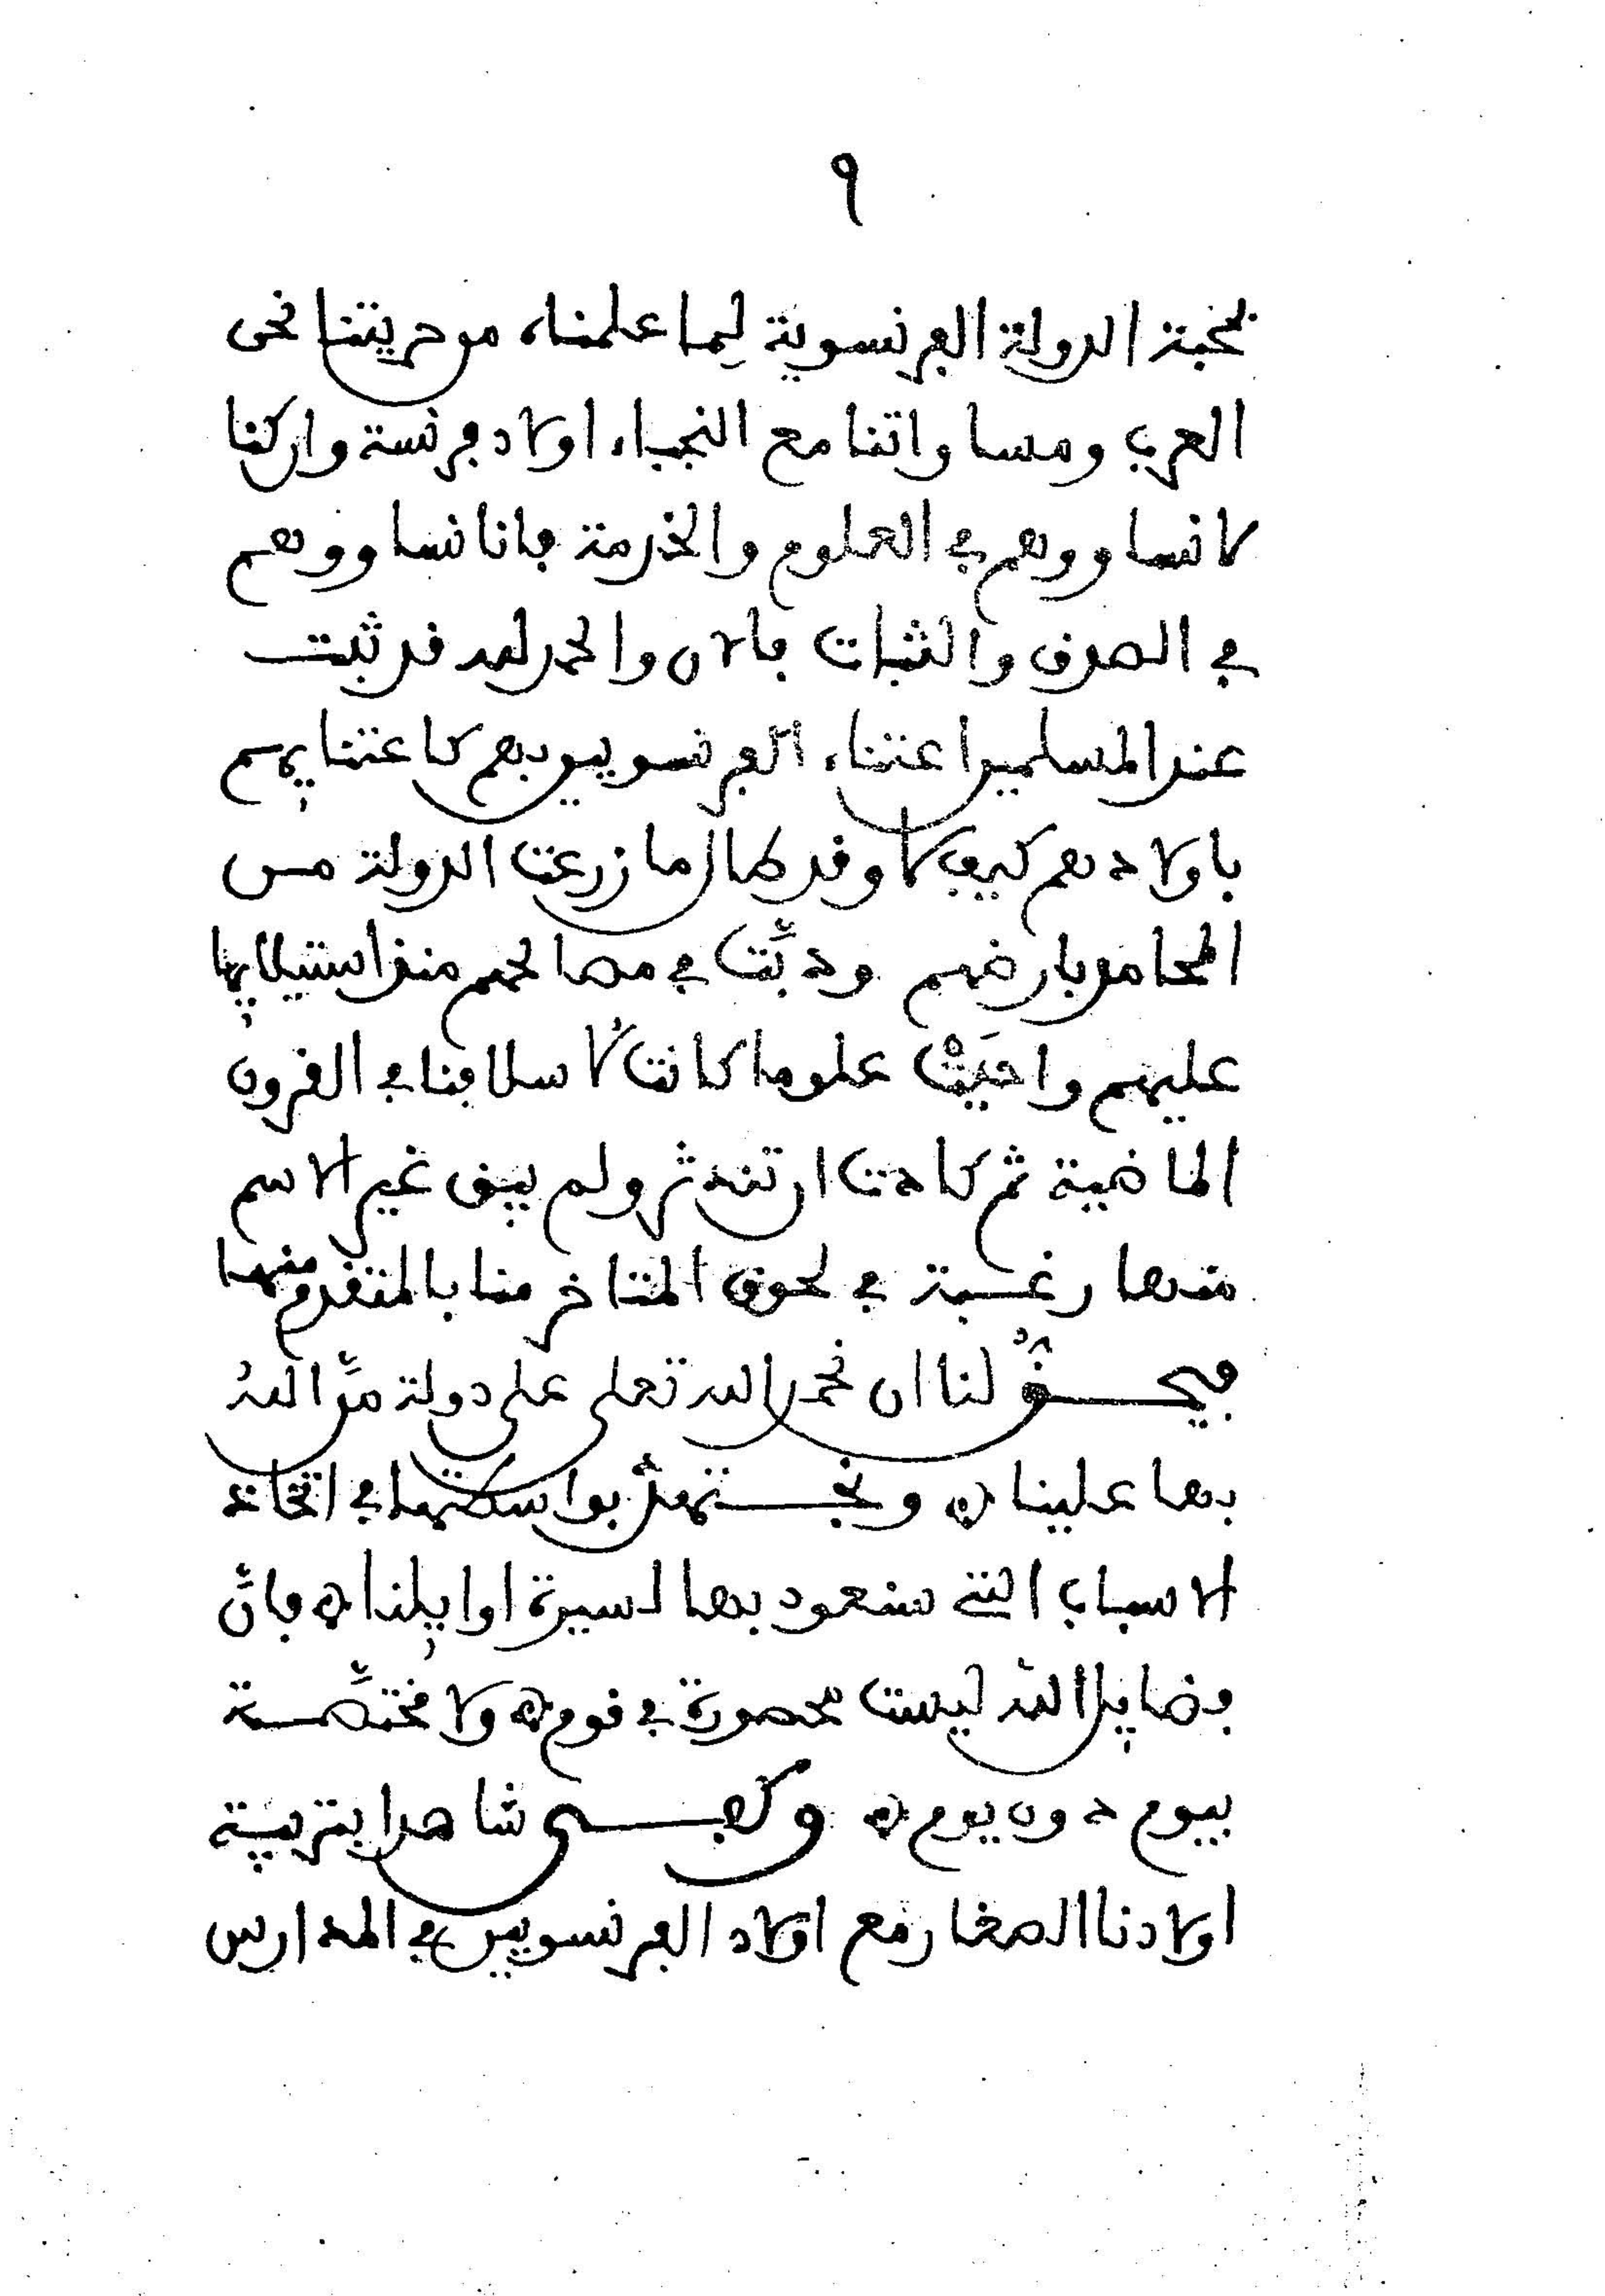 ٩
بمحبة الدولة الفرنسوية لِما علمناه من حريتنا نحن
العرب ومساواتنا مع النجباء اولاد فرنسة وان كنا
لا نساووهم في العلوم والخدمة فانا نساووهم
في الصدق والثبات فالان والحمد لله قد ثبت
عند المسلمين اعتناء الفرنسويين بهم كاعتنايهم
باولادهم كيف لا وقد طال ما زرعت الدولة من
المحامد بارضهم ودبَّت في مصالحهم منذ استيلايها
عليهم واحيَتْ علوما كانت لاسلافنا في القرون
الماضية ثم كادت ان تندثر ولم يبق غير الاسم
منها رغبة في لحوق المتاخر منا بالمتقدم منهما
فيحقُّ لنا ان نحمد الله تعلى على دولة منَّ اللهُ
بها علينا ۞ ونجتهدُ بواسطتها في اتخاذ
الاسباب التي سنعود بها لسيرة اوايلنا ۞ فانَّ
فضايل الله ليست محصورة في قوم ۞ ولا مختصَّة
بيوم دون يوم ۞ وكفى شاهدا بتربية
اولادنا الصغار مع اولاد الفرنسويين في المدارس